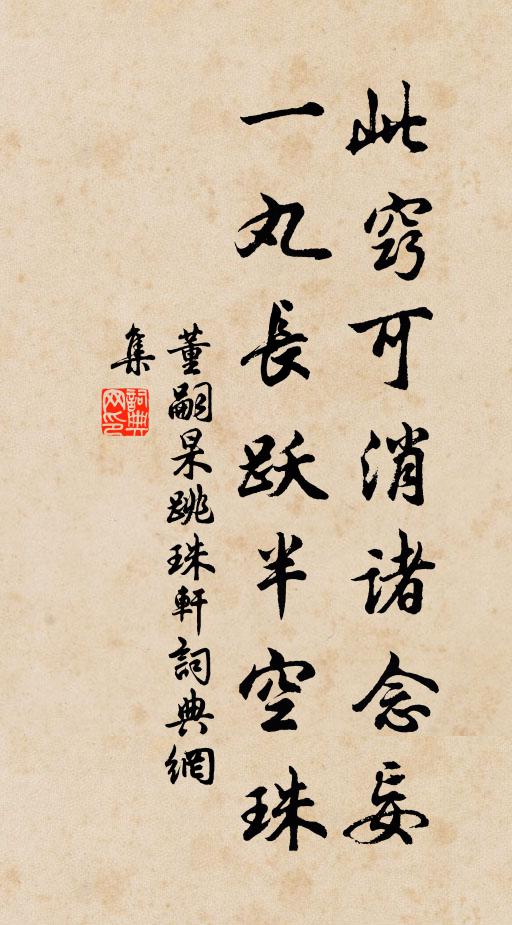 此窍可消诸念妄
一丸長跃半空珠
董嗣杲跳珠軒詞典網
集
詞典
网印